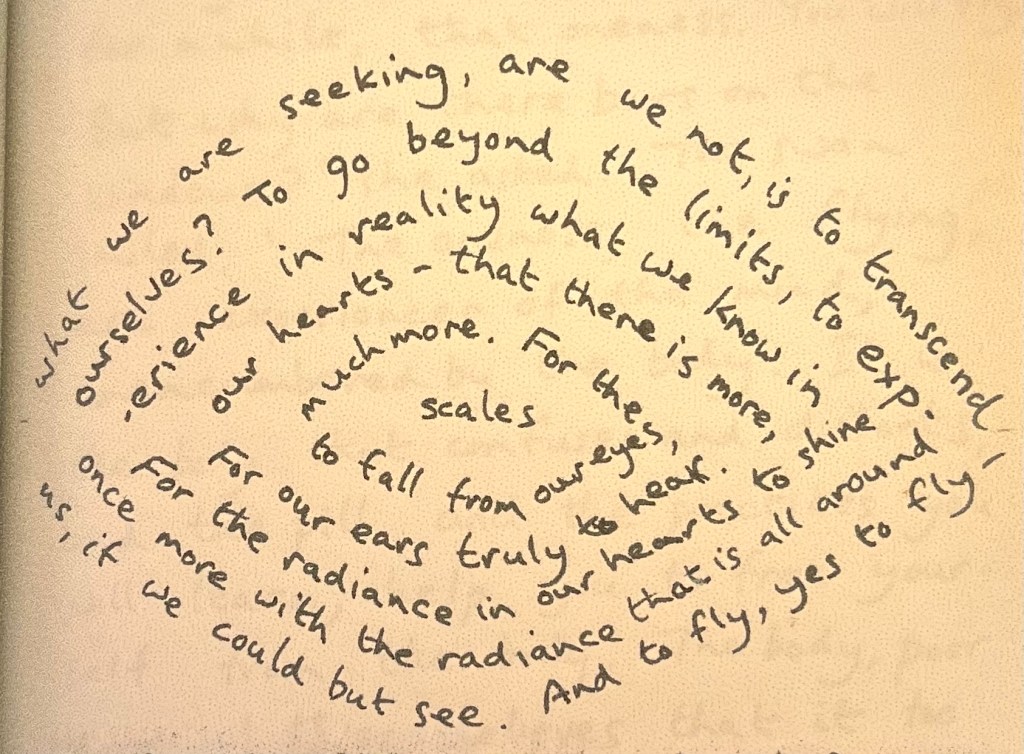 what we are seeking, are we not, is to transcend
ourselves? To go beyond the limits, to exp-
-erience in reality what we know in
our hearts - that there is more,
much more. For the
scales
to fall from our eyes,
For our ears truly to hear.
For the radiance in our hearts to shine
once more with the radiance that is all around
us, if we could but see. And to fly, yes to fly -